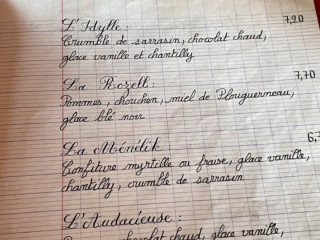 L'Idylle : 7,20
Crumble de sarrasin, chocolat chaud,
glace vanille et chantilly
La Rozell : 7,70
Pommes, chouchen, miel de Plouguerneau,
glace blé noir
La Ménélik :
Confiture myrtille ou fraise, glace vanille,
chantilly, crumble de sarrasin
L'Audacieuse :
chocolat chaud, glace vanille,